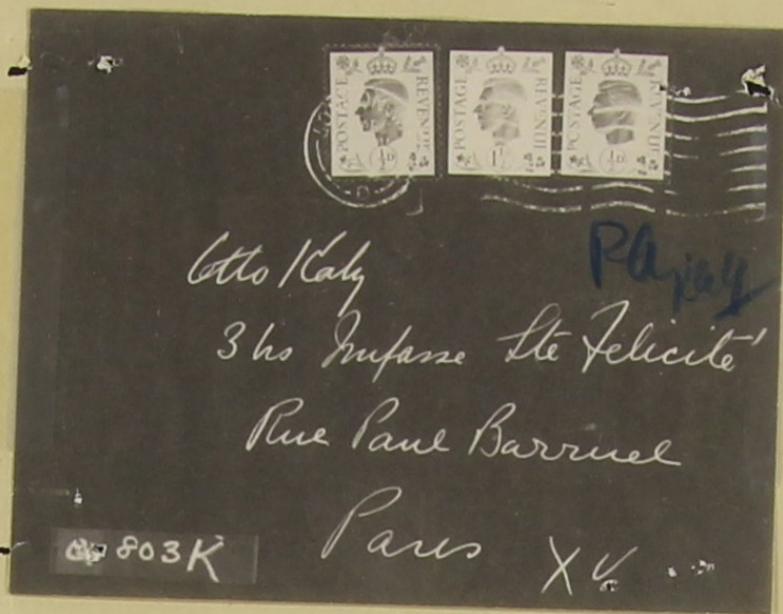 POSTAGE REVENUE ½D POSTAGE REVENUE 1½ POSTAGE REVENUE ½D
Otto Katz
3 bis Impasse Ste Félicité
Rue Paul Barruel
Paris XV
803K